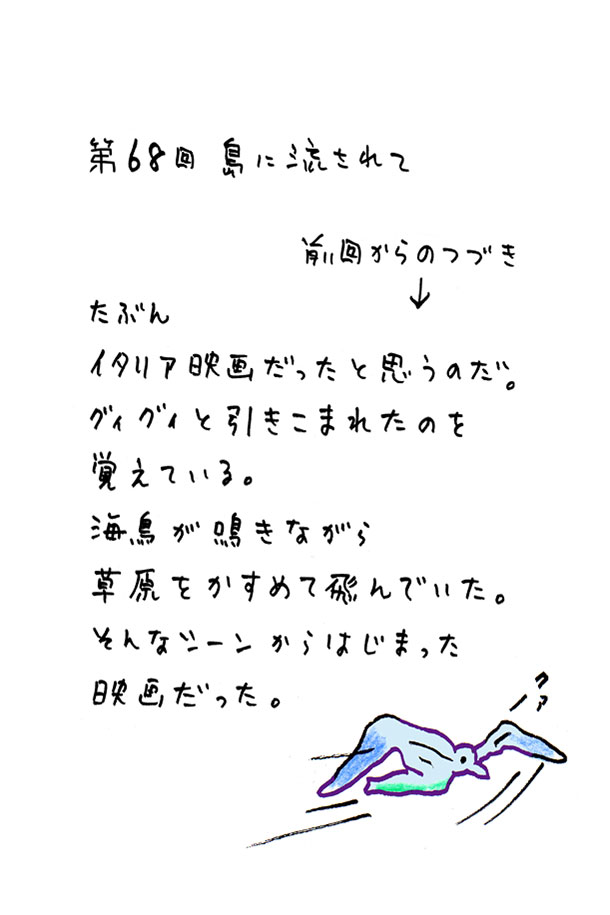 第68回 島に流されて
前回からのつづき
↓
たぶん
イタリア映画だったと思うのだ。
グィグィと引きこまれたのを
覚えている。
海鳥が鳴きながら
草原をかすめて飛んでいた。
そんなシーンからはじまった
映画だった。
クァ